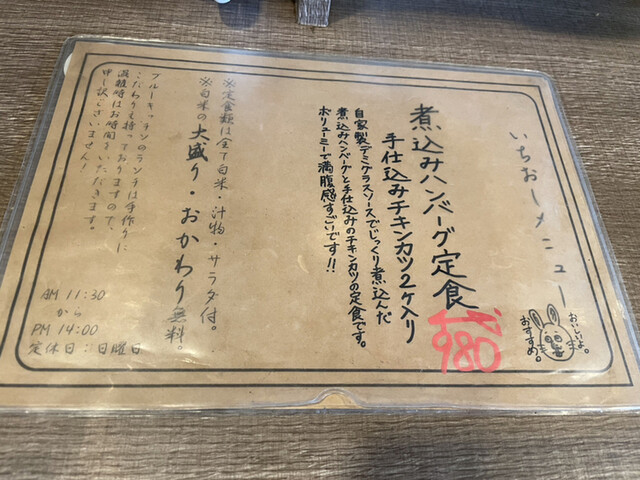 いちおしメニュー
おいしいよ。
おすすめ。
煮込みハンバーグ定食
手仕込みチキンカツ2ヶ入り
980
自家製デミグラスソースでじっくり煮込んだ
煮込みハンバーグと手仕込みのチキンカツの定食です。
ボリューミーで満腹感すごいです!!
※定食類は全て白米・汁物・サラダ付。
※白米の大盛り・おかわり無料。
ブルーキッチンのランチは手作りに
こだわりを持っておりますので、
混雑時はお時間をいただきます。
申し訳ございません!
AM 11:30
から
PM 14:00
定休日:日曜日